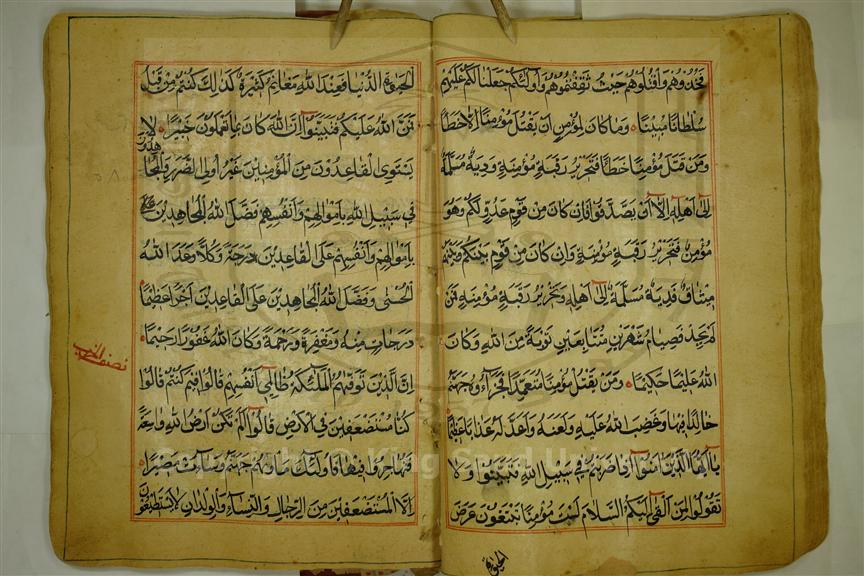 فخذوهم واقتلوهم حيث ثقفتموهم واولئكم جعلنا لكم عليهم
سلطانا مبينا وما كان لمؤمن ان يقتل مؤمنا الا خطأ
ومن قتل مؤمنا خطأ فتحرير رقبة مؤمنة ودية مسلمة
الى اهله الا ان يصدقوا فان كان من قوم عدو لكم وهو
مؤمن فتحرير رقبة مؤمنة وان كان من قوم بينكم وبينهم
ميثاق فدية مسلمة الى اهله وتحرير رقبة مؤمنة فمن
لم يجد فصيام شهرين متتابعين توبة من الله وكان
الله عليما حكيما ومن يقتل مؤمنا متعمدا فجزاؤه جهنم
خالدا فيها وغضب الله عليه ولعنه واعد له عذابا عظيما
يا ايها الذين امنوا اذا ضربتم في سبيل الله فتبينوا ولا
تقولوا لمن القى اليكم السلام لست مؤمنا تبتغون عرض
الحيوة
الحيوة الدنيا فعند الله مغانم كثيرة كذلك كنتم من قبل
فمن الله عليكم فتبينوا ان الله كان بما تعملون خبيرا لا
يستوى القاعدون من المؤمنين غير اولى الضرر والمجا
هدون
في سبيل الله باموالهم وانفسهم فضل الله المجاهدين
باموالهم وانفسهم على القاعدين درجة وكلا وعد الله
الحسنى وفضل الله المجاهدين على القاعدين اجرا عظيما
درجات منه ومغفرة ورحمة وكان الله غفورا رحيما
نصف الحزب
ان الذين توفيهم الملئكة ظالمي انفسهم قالوا فيم كنتم قالوا
كنا مستضعفين في الارض قالوا الم تكن ارض الله واسعة
فتهاجروا فيها فاولئك ماويهم جهنم وساءت مصيرا
الا المستضعفين من الرجال والنساء والولدان لا يستطيعون